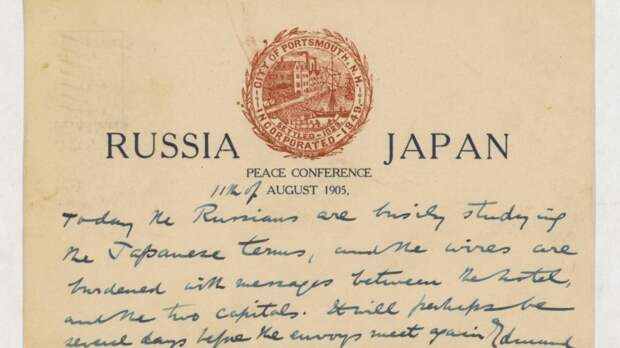 CITY OF PORTSMOUTH, N.H.
INCORPORATED-1849.
SETTLED-1623.
RUSSIA JAPAN
PEACE CONFERENCE
11th of AUGUST 1905,
Today the Russians are busily studying
the Japanese terms, and the wires are
burdened with messages between the hotel,
and the two capitals. It will perhaps be
several days before the envoys meet again Edmund